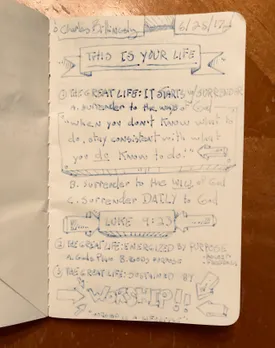 Charles
6/25/17
THIS IS YOUR LIFE
① THE GREAT LIFE: IT STARTS w/ SURRENDER
A. surrender to the ways of God
"when you don't know what to
do, stay consistent with what
you do know to do."
B. surrender to the will of God
C. surrender DAILY to God
LUKE 9:23
② THE GREAT LIFE: ENERGIZED BY PURPOSE
A. Gods Plan B.
③ THE GREAT LIFE: SUSTAINED BY
WORSHIP!!